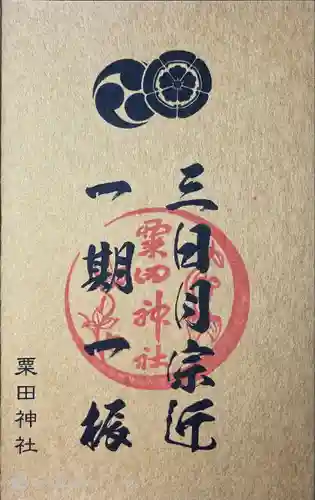 三日月宗近
一期一振
粟田神社
粟田神社